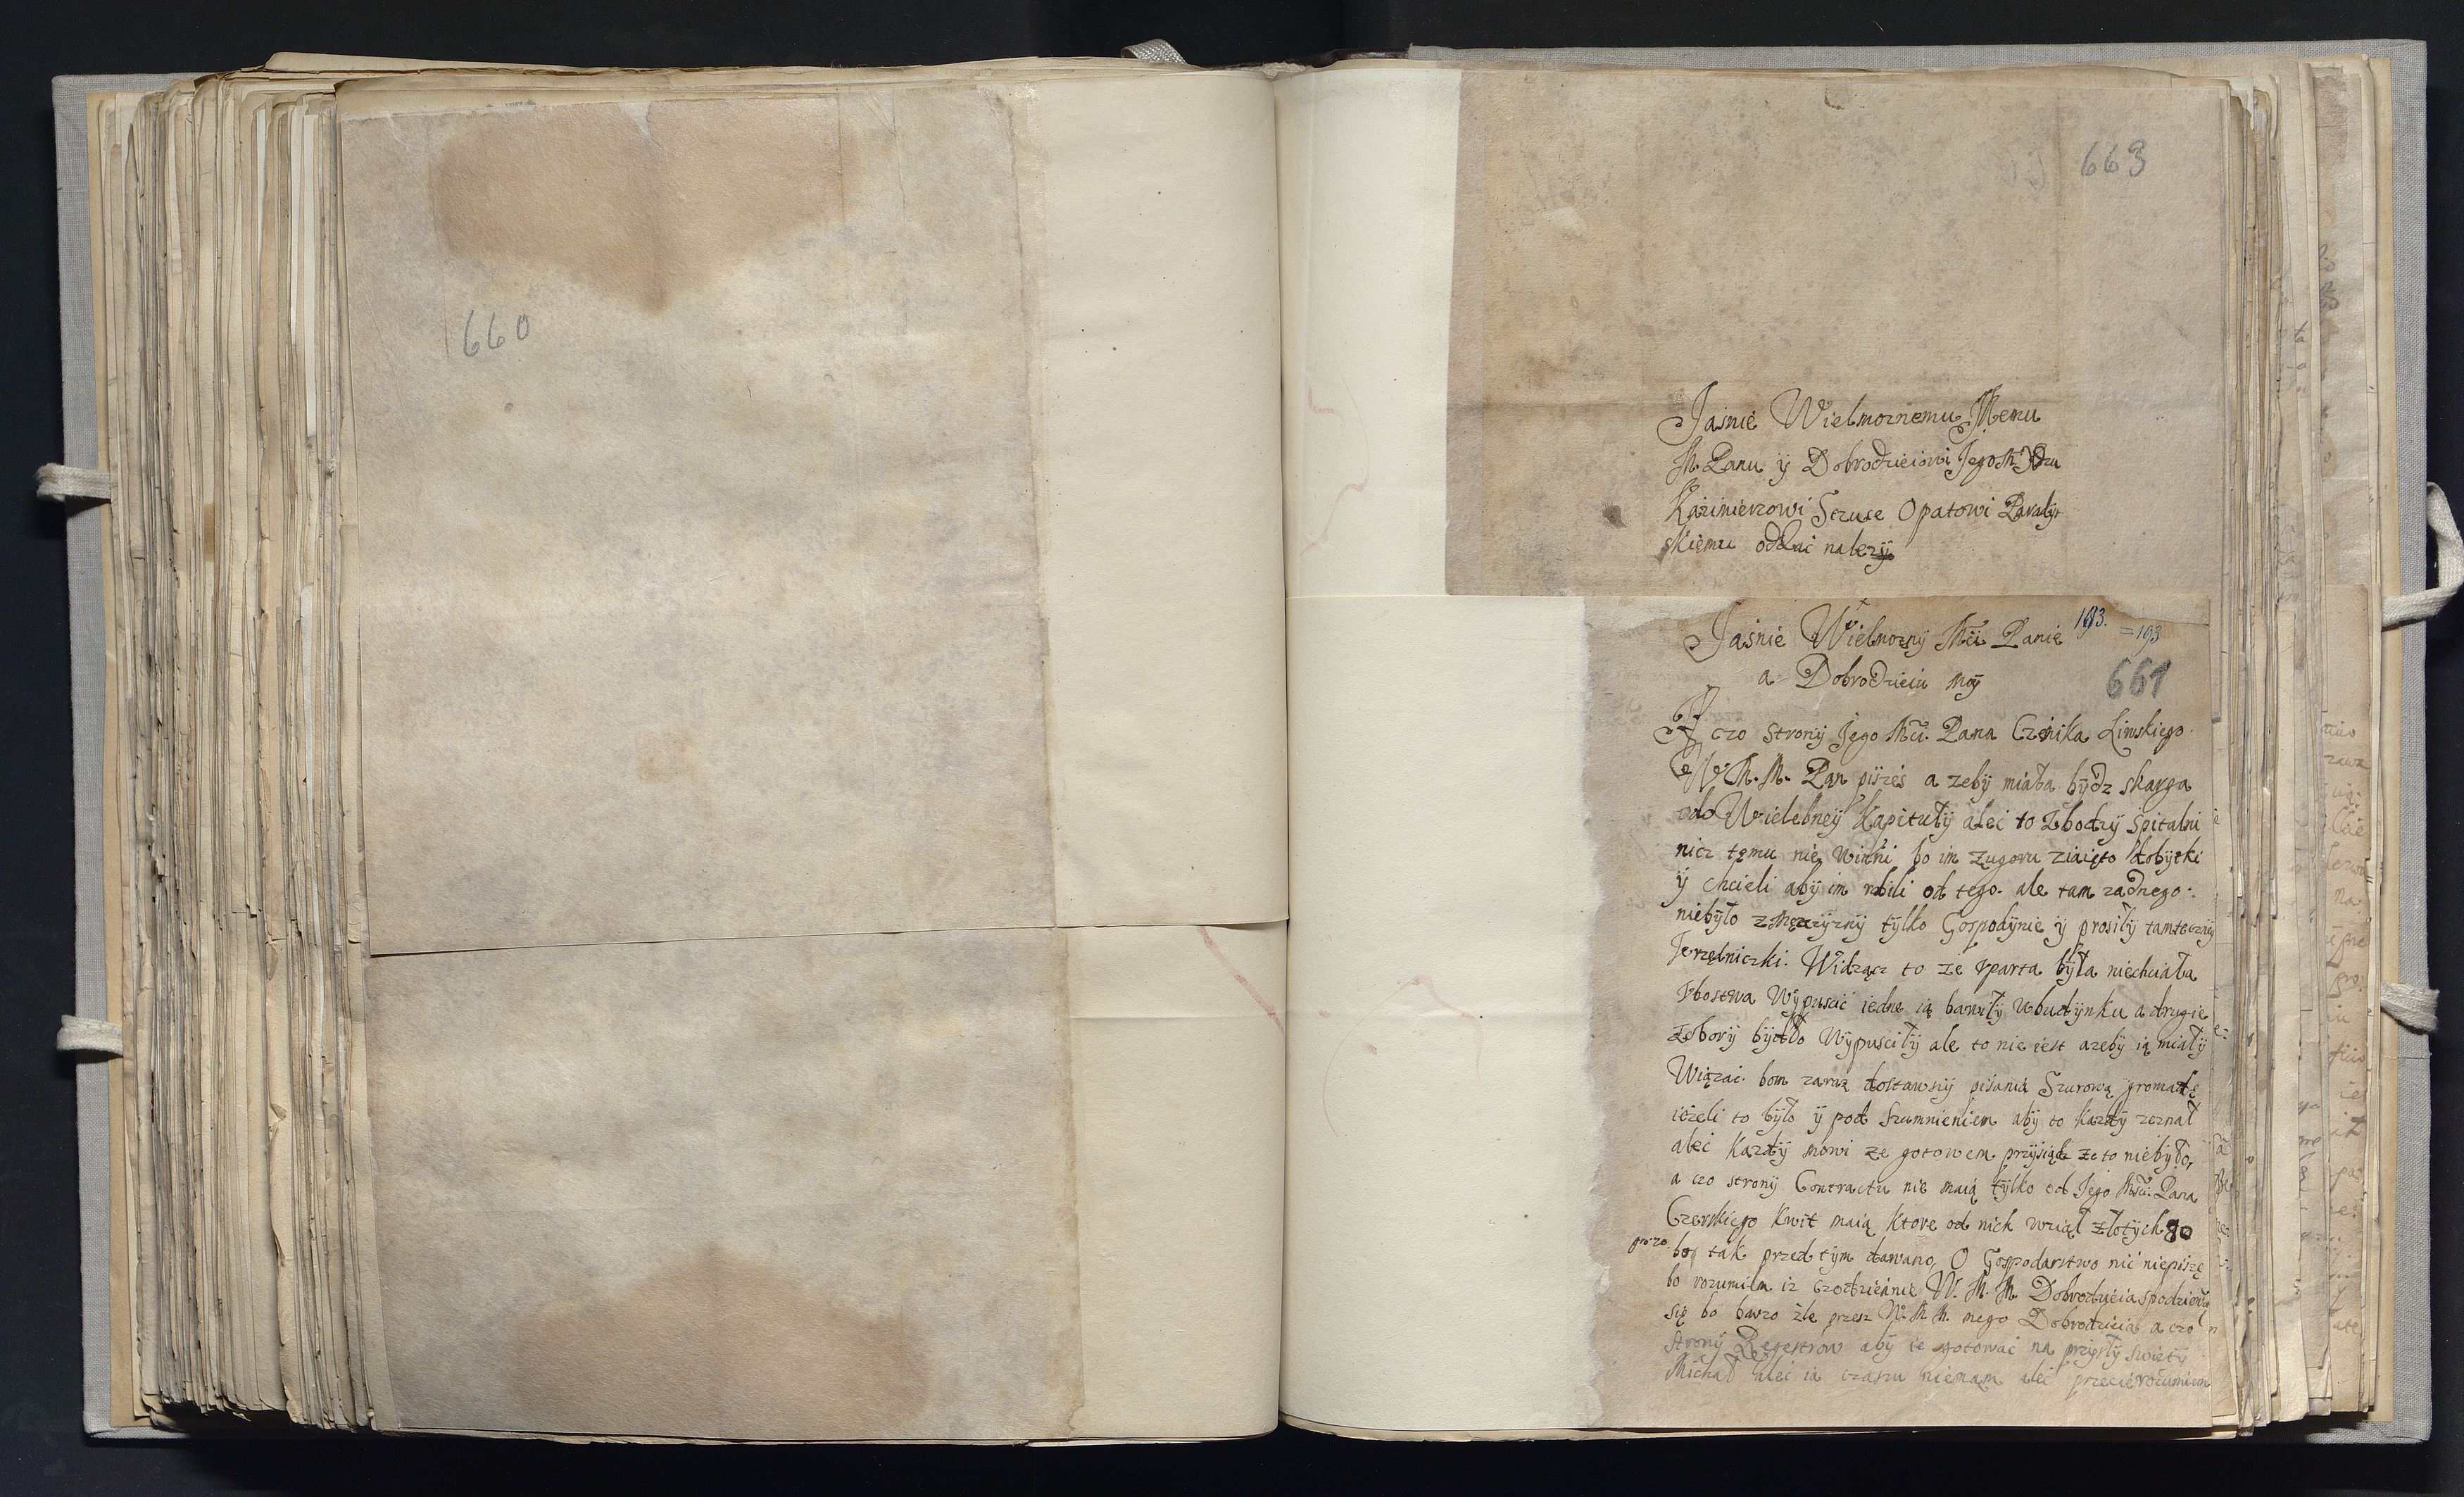 660
663
Jasnie Wielmoznemu Memu
M. Panu ÿ Dobrodzieiowi Jego M. Xdzu
Kazimierzowi Sczuce Opatowi Paradÿz
skiemu oddac nalezÿ
193. =193
Jasnie Wielmoznÿ Mći Panie
661
a Dobrodzieiu moÿ
A czo stronÿ Jego Mći. Pana Cześnika Linskiego
W. M. M. Pan piszes a zebÿ miała bÿdz skarga
do Wielebneÿ Kapitułÿ aleć to Zbodzÿ Spitalni
nicz temu nie winni bo im zugoru ziaięto dobÿtki
ÿ chcieli abÿ im robili od tego. ale tam zadnego
niebÿło zMęzczÿznÿ tÿlko Gospodÿnie ÿ prosiłÿ tamtecznÿ
Vrzędniczki. Widząncz to ze Vparta bÿła niechciała
Vbostwa Wÿpuscić iedne ią bawiłÿ wbudÿnku a drugie
zoborÿ bÿdło Wÿpusciłÿ ale to nie iest azebÿ ią miałÿ
Wiązac. bom zaraz dostawszÿ pisania Szurową gromadę
iezeli to bÿło ÿ pod Szumnieniem abÿ to kazdÿ zeznał
aleć kazdÿ mowi ze gotowem przÿsiądz ze to niebÿło,
a czo stronÿ Contractu nie maią tÿlko od Jego Mści. Pana
Czerskiego kwit maią ktore od nich wziął złotÿch 80
gro: 20 boÿ tak przed tÿm dawano, O Gospodarstwo nic niepiszę
bo rozumiem iz czodziennie W. M. M. Dobrodzieia spodziewa
się bo barzo zle przez W. M. M. mego Dobrodzieia a czo
stronÿ Regestrow abÿ ie gotować na przÿszłÿ Swiętÿ
Michał aleć ia czaszu niemam aleć przecie rozumiem